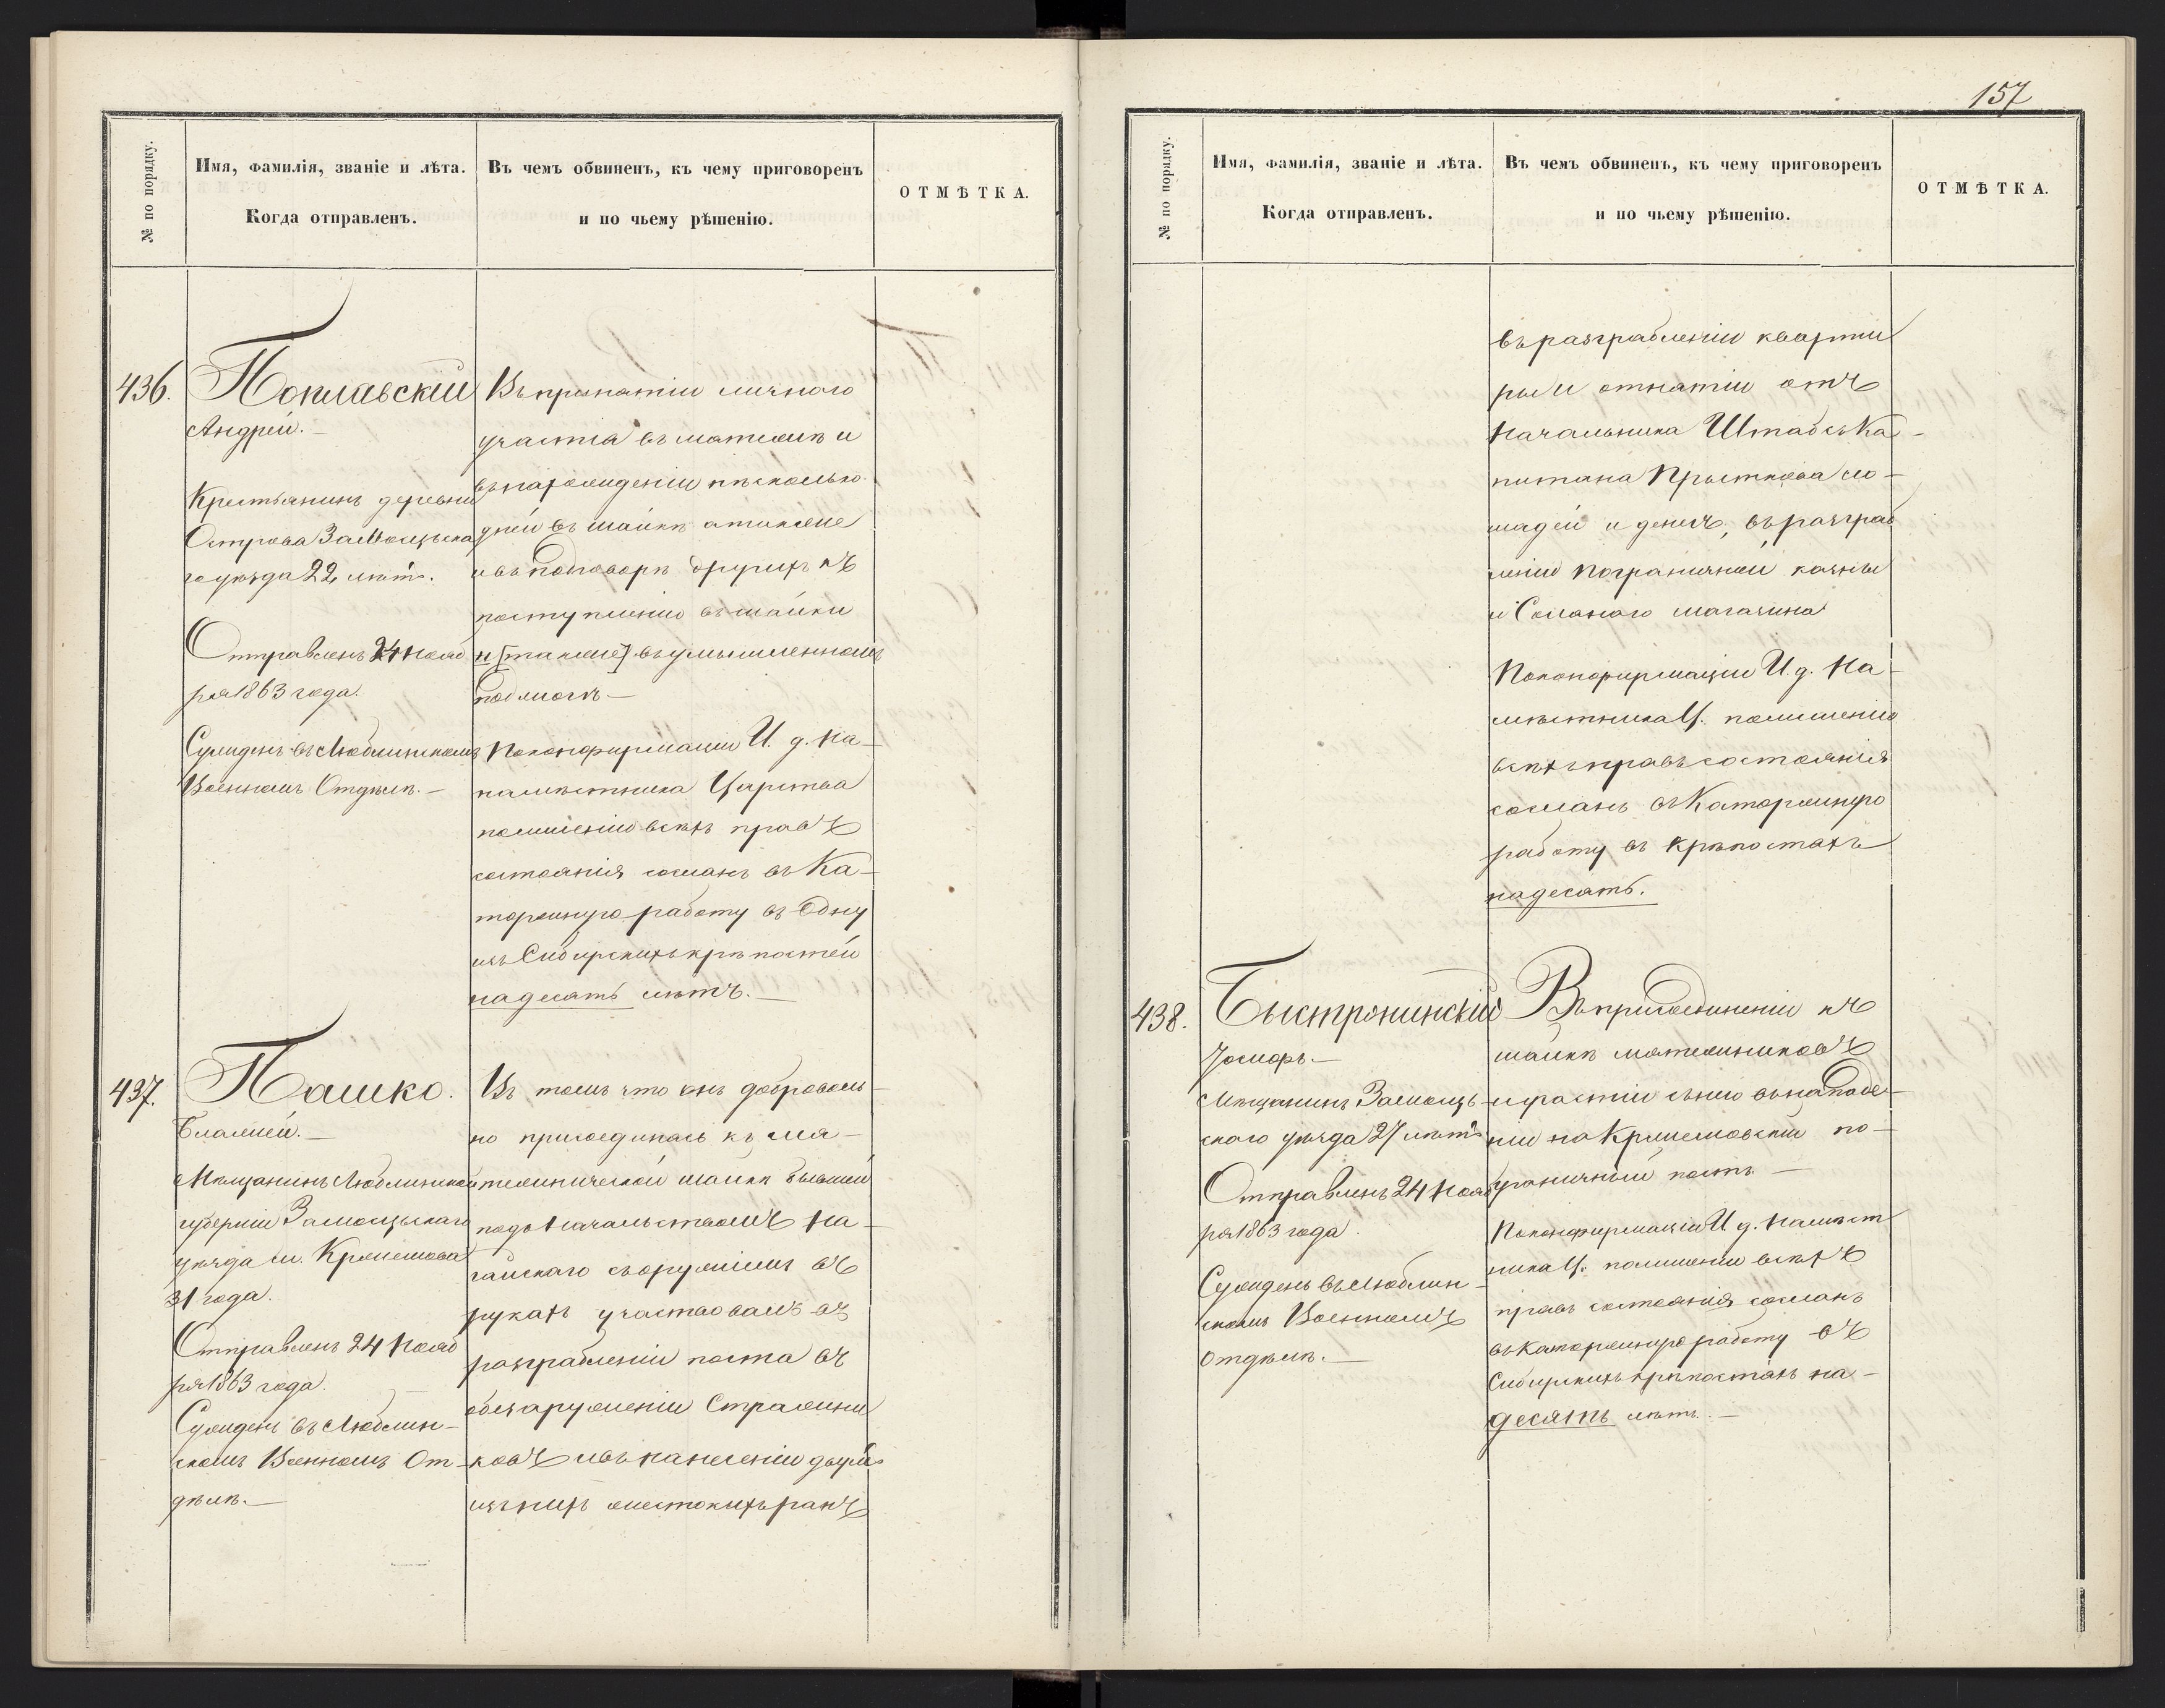 157
№ по порядку.
Имя, фамилія, званіе и лѣта.
Когда отправленъ.
Въ чемъ обвиненъ, къ чему приговоренъ
и по чьему рѣшенію.
ОТМѢТКА.
436.
Поплавскій
Андрей. —
Крестьянинъ деревни
Острова Замосцьска
го уѣзда 22 лѣтъ.
Отправленъ 24 Нояб
ря 1863 года.
Сужденъ въ Люблинскомъ
Военномъ Отдѣлѣ. —
Въ принятіи личнаго
участія въ мятежѣ и
въ нахожденіи нѣсколько
дней въ шайкѣ а также
и въ подговорѣ другихъ къ
поступленію въ шайки
и [также] въ умышленномъ
поджогѣ —
По конфирмаціи И. д. На-
намѣстника Царства
по лишеніи всѣхъ правъ
состоянія сосланъ въ Ка-
торжную работу въ Одну
изъ Сибирскихъ крѣпостей
на десять лѣтъ. —
437.
Пашко.
Блажей. —
Мѣщанинъ Люблинской
губерніи Замосцьскаго
уѣзда м. Крешова
31 года.
Отправленъ 24 Нояб
ря 1863 года.
Сужденъ въ Люблин-
скомъ Военномъ От-
дѣлѣ. —
Въ томъ что онъ доброволь-
но присоединясь къ мя-
тежнической шайкѣ бывшей
подъ Начальствомъ На-
гайскаго съ оружіемъ въ
рукахъ участвовалъ въ
разграбленіи поста въ
обезаруженіи Стражни
ковъ и въ нанесеніи двумъ
изъ нихъ жестокихъ ранъ
№ по порядку.
Имя, фамилія, званіе и лѣта.
Когда отправленъ.
Въ чемъ обвиненъ, къ чему приговоренъ
и по чьему рѣшенію.
ОТМѢТКА.
въ разграбленіи кварти
ры и отнятіи отъ
Начальника Штабсъ Ка-
питана Прыткова ло-
шадей и денегъ, въ разграб
леніи пограничной казны
и Соляного магазина
По конфирмаціи И. д. На-
мѣстника Ц. по лишеніи
всѣхъ правъ состоянія
сосланъ въ Каторжную
работу въ крѣпостяхъ
на десять.
438.
Быстронинскій
Іосифъ. —
Мѣщанинъ Замосць-
скаго уѣзда 27 лѣтъ
Отправленъ 24 Нояб
ря 1863 года.
Сужденъ въ Люблин-
скомъ Военномъ
Отдѣлѣ. —
Въ присоединеніи къ
шайкѣ мятежниковъ
и участіи съ нею въ нападе-
ніи на Крешовскій по-
граничный постъ —
По конфирмаціи И. д. Намѣст
ника Ц. по лишеніи всѣхъ
правъ состоянія сосланъ
въ каторжную работу въ
Сибирскихъ крѣпостяхъ на-
десять лѣтъ. —